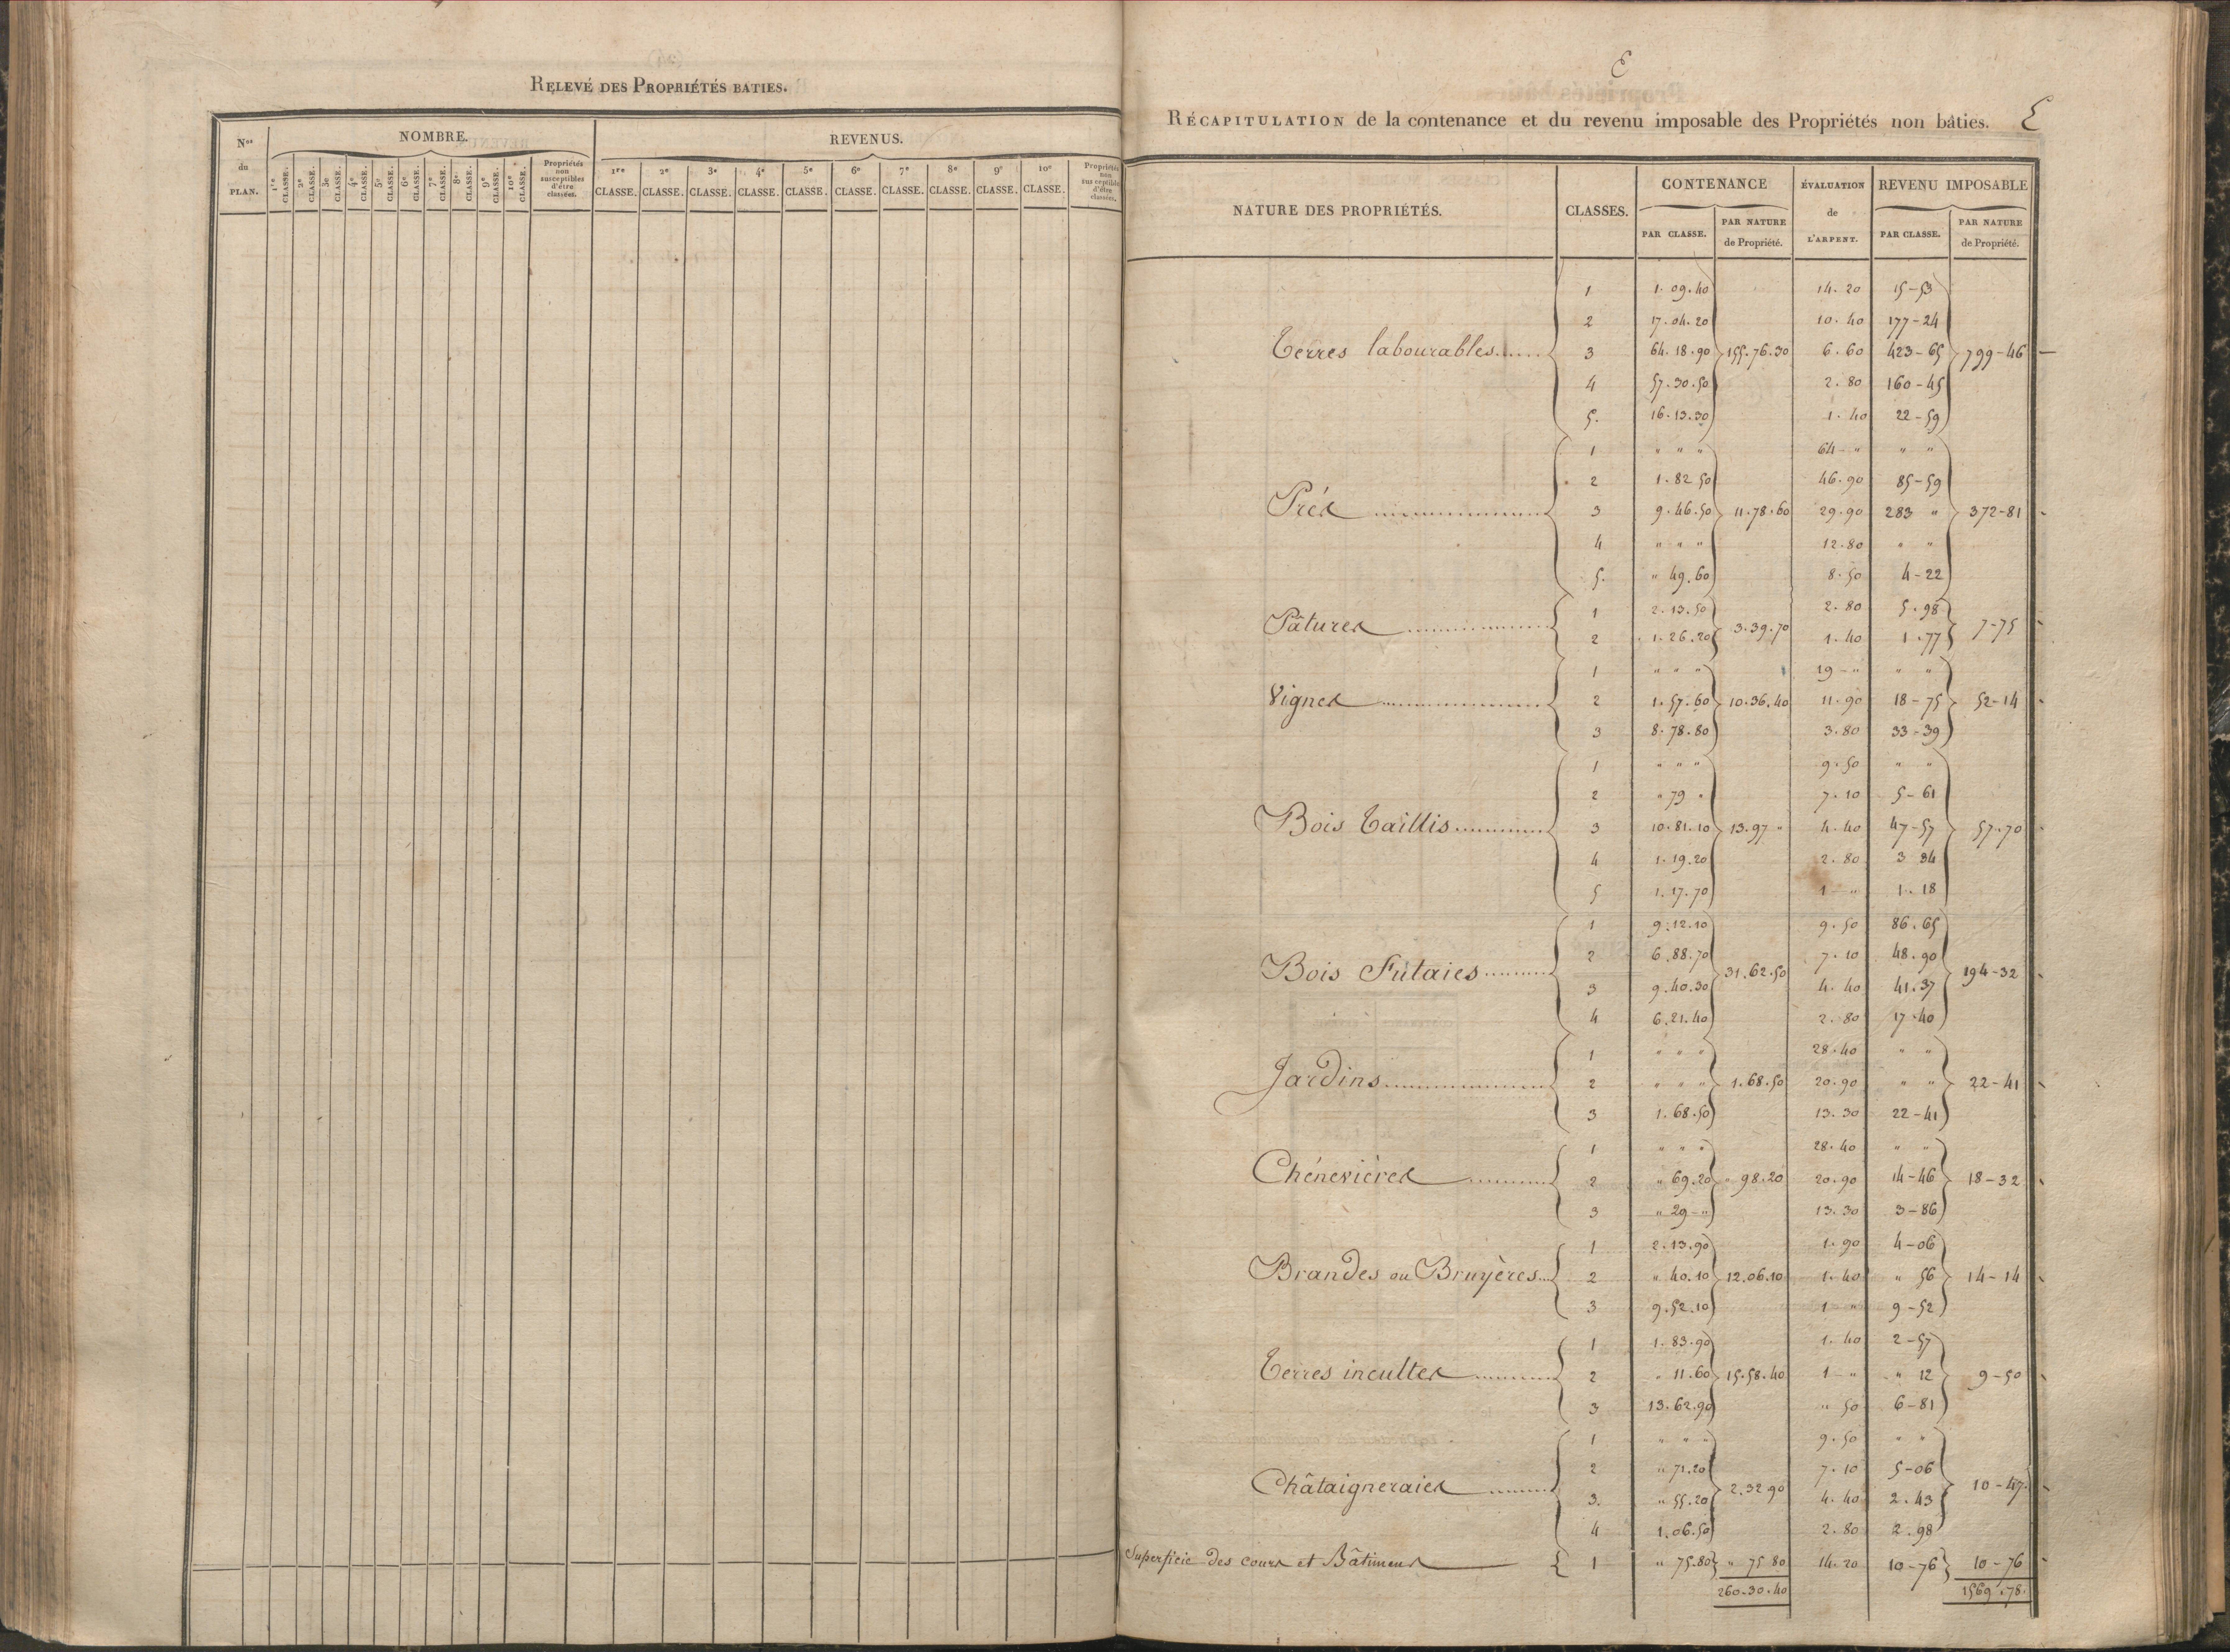 RELEVÉ DES PROPRIÉTÉS BATIES.
Nos du PLAN.
NOMBRE.
REVENUS.
1re CLASSE. 2e CLASSE. 3e CLASSE. 4e CLASSE. 5e CLASSE. 6e CLASSE. 7e CLASSE. 8e CLASSE. 9e CLASSE. 10e CLASSE. Propriétés non susceptibles d'être classées.
1re CLASSE. 2e CLASSE. 3e CLASSE. 4e CLASSE. 5e CLASSE. 6e CLASSE. 7e CLASSE. 8e CLASSE. 9e CLASSE. 10e CLASSE. Propriétés non susceptibles d'être classées.
E
RÉCAPITULATION de la contenance et du revenu imposable des Propriétés non bâties. E
NATURE DES PROPRIÉTÉS. CLASSES. CONTENANCE ÉVALUATION de L'ARPENT. REVENU IMPOSABLE
PAR CLASSE. PAR NATURE de Propriété. PAR CLASSE. PAR NATURE de Propriété.
1 1.09.40 14.20 15-53
2 17.04.20 10.40 177-24
Terres labourables...... 3 64.18.90 155.76.30 6.60 423-65 799-46
4 57.30.50 2.80 160-45
5. 16.13.30 1.40 22-59
1 " " " 64-" " "
2 1.82.50 46.90 85-59
Prés 3 9.46.50 11.78.60 29.90 283 " 372-81
4 " " " 12.80 " "
5. " 49.60 8.50 4-22
1 2.13.50 2.80 5.98
Pâtures 3.39.70 7-75
2 1.26.20 1.40 1.77
1 " " " 19-" " "
Vignes 2 1.57.60 10.36.40 11.90 18-75 52-14
3 8.78.80 3.80 33-39
1 " " " 9.50 " "
2 " 79 " 7.10 5-61
Bois Taillis 3 10.81.10 13.97 " 4.40 47-57 57.70
4 1.19.20 2.80 3 34
5 1.17.70 1-" 1.18
1 9.12.10 9.50 86.65
2 6.88.70 7.10 48.90
Bois Futaies 31.62.50 194-32
3 9.40.30 4.40 41.37
4 6.21.40 2.80 17.40
1 " " " 28.40 " "
Jardins 2 " " " 1.68.50 20.90 " " 22-41
3 1.68.50 13.30 22-41
1 " " " 28.40 " "
Chénevières 2 " 69.20 " 98.20 20.90 14-46 18-32
3 " 29-" 13.30 3-86
1 2.13.90 1.90 4-06
Brandes ou Bruyères 2 " 40.10 12.06.10 1.40 " 56 14-14
3 9.52.10 1 " 9-52
1 1.83.90 1.40 2-57
Terres incultes 2 " 11.60 15.58.40 1-" " 12 9-50
3 13.62.90 " 50 6-81
1 " " " 9.50 " "
2 " 71.20 7.10 5-06
Châtaigneraies 2.32 90 10-47
3. " 55.20 4.40 2.43
4 1.06.50 2.80 2.98
Superficie des cours et Bâtimens 1 " 75.80 " 75 80 14.20 10-76 10-76
260.30.40 1569.78.